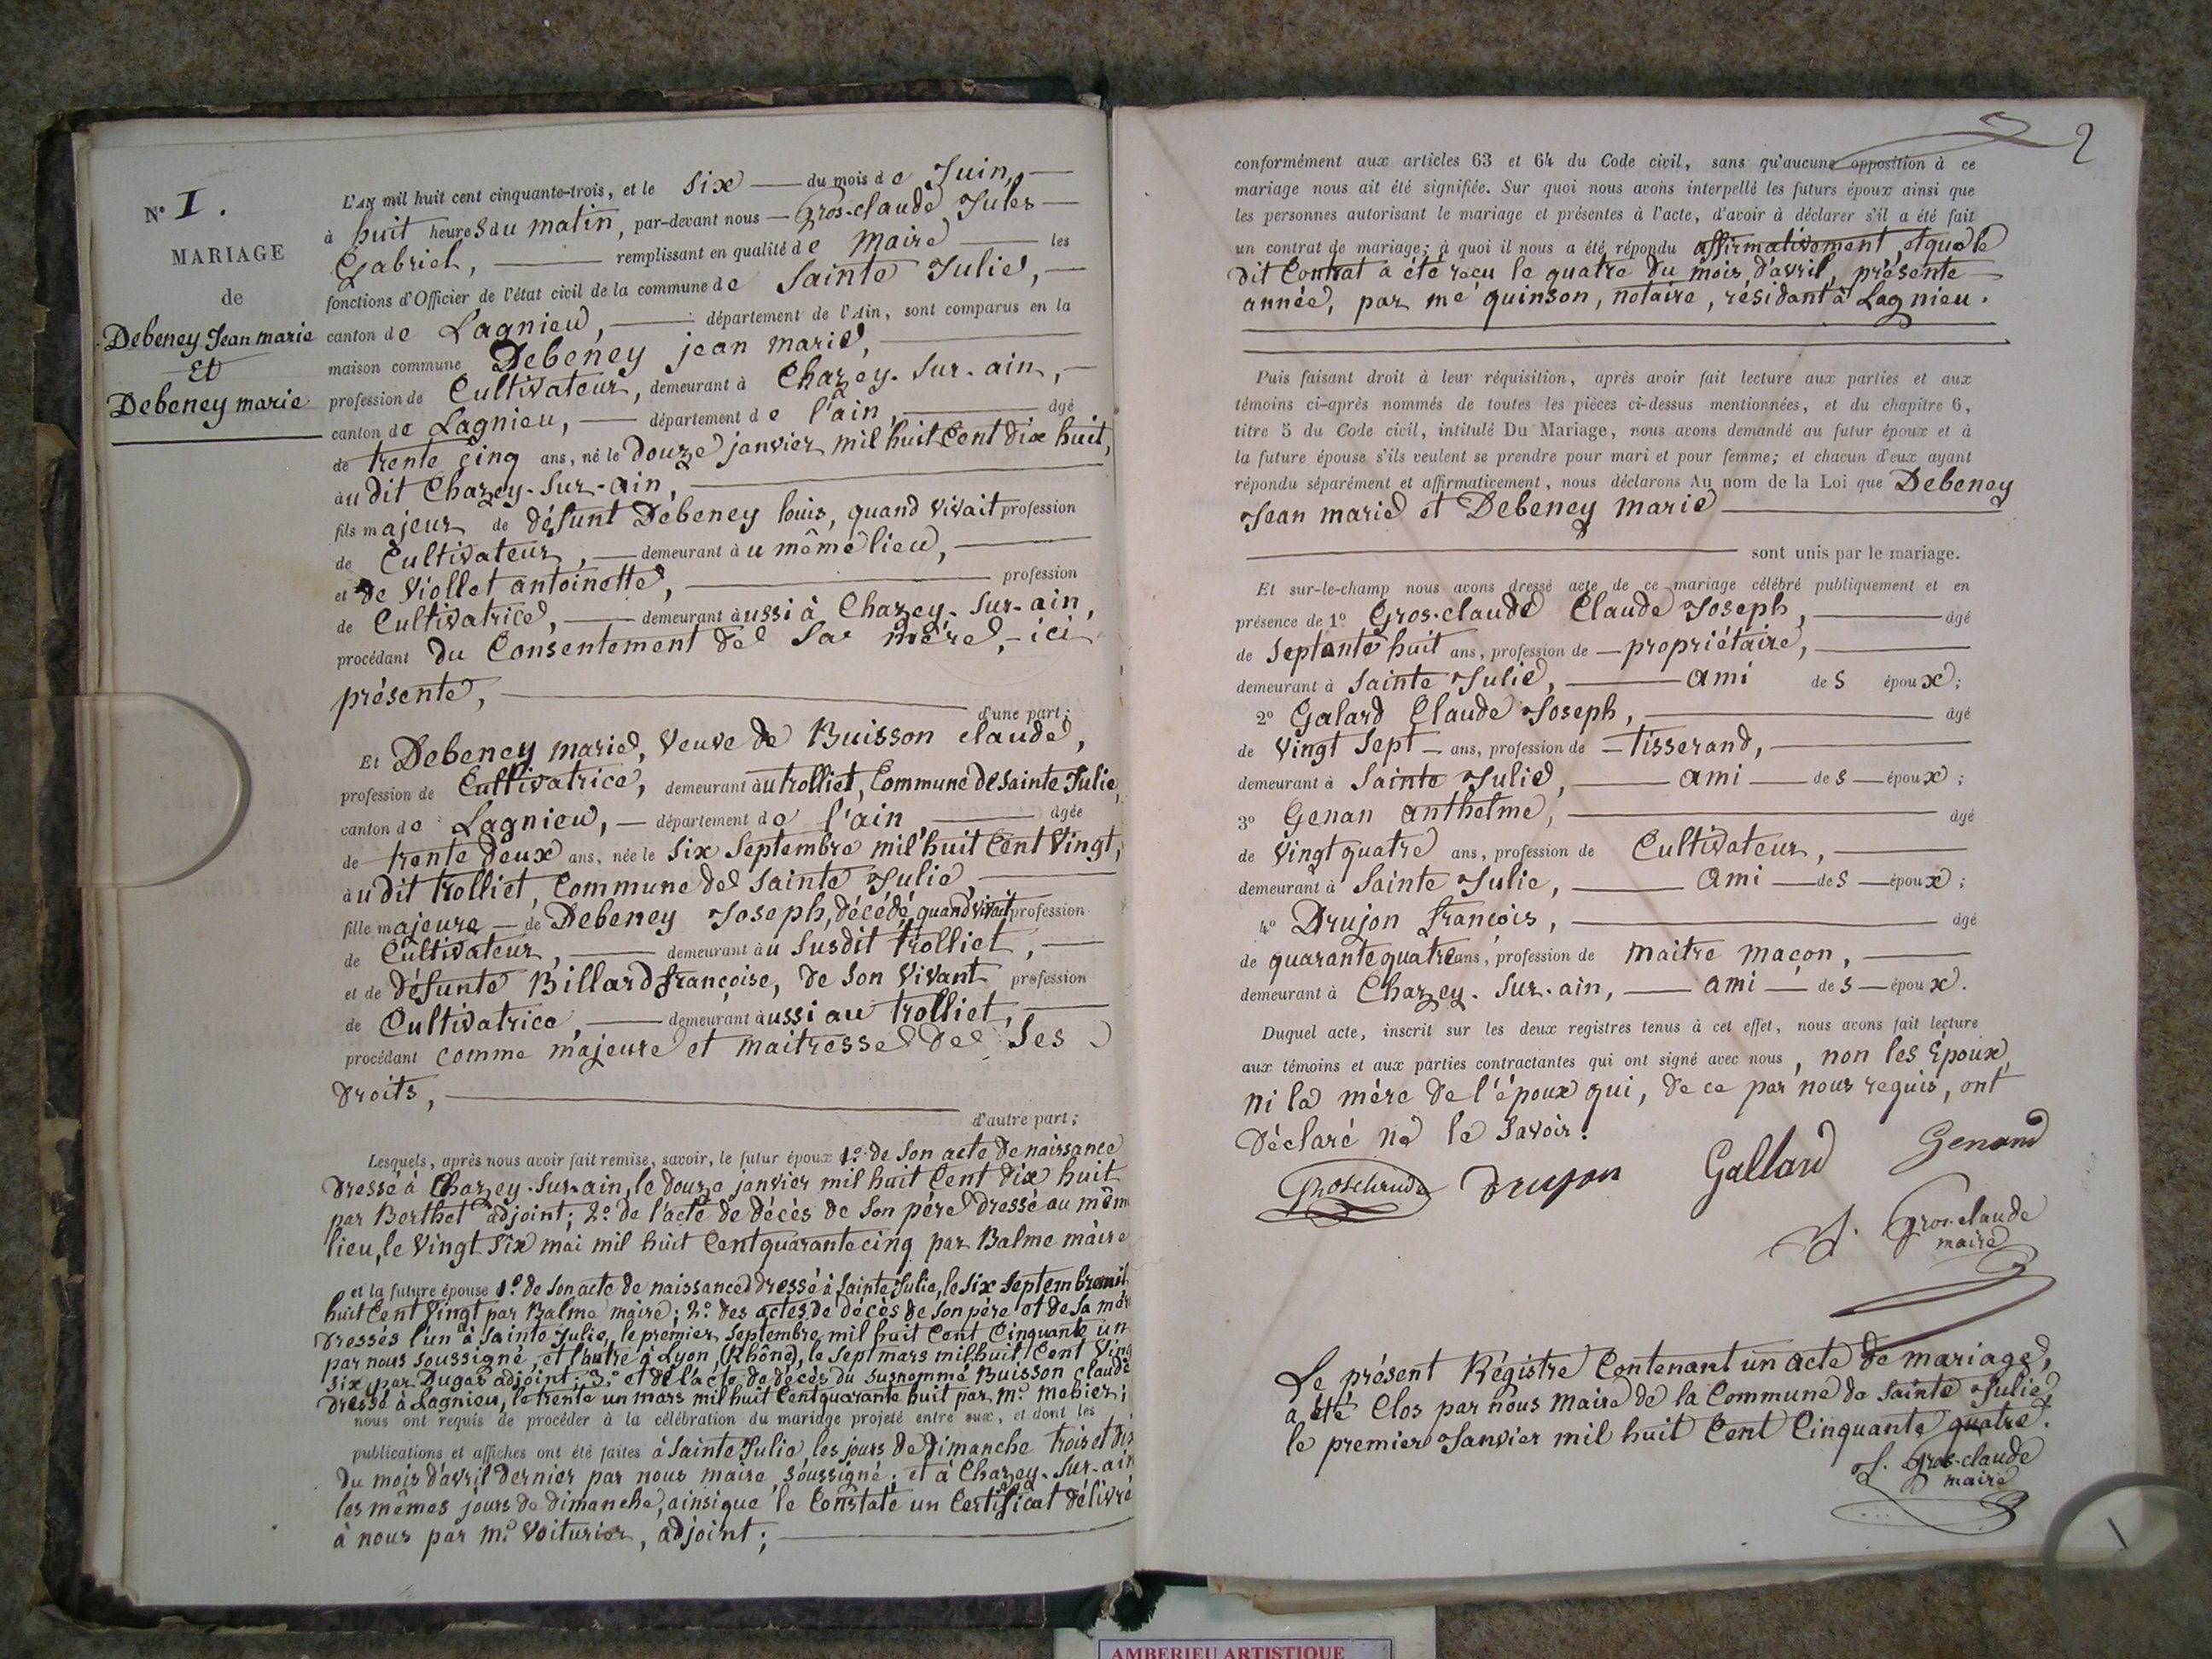 N.º I.
MARIAGE
de
Debeney Jean marie
Et
Debeney marie
L'AN mil huit cent cinquante-trois, et le six du mois de Juin,
à huit heures du matin, par-devant nous Gros-claude Jules
Gabriel, remplissant en qualité de Maire les
fonctions d'Officier de l'état civil de la commune de Sainte Julie,
canton de Lagnieu, département de l'Ain, sont comparus en la
maison commune Debeney jean marie,
profession de Cultivateur, demeurant à Chazey-sur-ain,
canton de Lagnieu, département de l'ain, âgé
de trente cinq ans, né le douze janvier mil huit Cent dix huit,
au dit Chazey-sur-ain,
fils majeur de défunt Debeney louis, quand vivait profession
de Cultivateur, demeurant au même lieu,
et de Viollet antoinette, profession
de Cultivatrice, demeurant aussi à Chazey-sur-ain,
procédant du Consentement de sa mère, ici
présente, d'une part;
Et Debeney marie, veuve de Buisson claude,
profession de Cultivatrice, demeurant au trolliet, Commune de Sainte Julie,
canton de Lagnieu, département de l'ain âgée
de trente deux ans, née le six Septembre mil huit Cent Vingt,
au dit trolliet, Commune de Sainte Julie,
fille majeure de Debeney Joseph, décédé, quand vivait profession
de Cultivateur, demeurant au susdit trolliet,
et de défunte Billard françoise, de son vivant profession
de Cultivatrice, demeurant aussi au trolliet,
procédant comme majeure et maitresse de ses
droits, d'autre part;
Lesquels, après nous avoir fait remise, savoir, le futur époux 1.º de son acte de naissance
dressé à Chazey-sur-ain, le douze janvier mil huit Cent dix huit
par Berthet adjoint; 2.º de l'acte de décès de son père dressé au même
lieu, le vingt six mai mil huit Cent quarante cinq par Balme maire
et la future épouse 1.º de son acte de naissance dressé à Sainte Julie, le six Septembre mil
huit Cent Vingt par Balme maire; 2.º des actes de décès de son père et de sa mère
dressés l'un à Sainte Julie, le premier Septembre mil huit Cent Cinquante un
par nous soussigné, et l'autre à Lyon, (Rhône), le sept mars mil huit Cent Vingt
six, par Dugas adjoint; 3.º et de l'acte de décès du susnommé Buisson claude
dressé à Lagnieu, le trente un mars mil huit Cent quarante huit par m.r
nous ont requis de procéder à la célébration du mariage projeté entre eux, et dont les
publications et affiches ont été faites à Sainte Julie, les jours de dimanche trois et dix
du mois d'avril dernier par nous maire soussigné; et à Chazey-sur-ain
les mêmes jours de dimanche, ainsi que le Constate un Certificat délivré
à nous par m.r Voiturier, adjoint;
2
conformément aux articles 63 et 64 du Code civil, sans qu'aucune opposition à ce
mariage nous ait été signifiée. Sur quoi nous avons interpellé les futurs époux ainsi que
les personnes autorisant le mariage et présentes à l'acte, d'avoir à déclarer s'il a été fait
un contrat de mariage; à quoi il nous a été répondu affirmativement, et que le
dit Contrat a été reçu le quatre du mois d'avril, présente
année, par me quinson, notaire, résidant à Lagnieu.
Puis faisant droit à leur réquisition, après avoir fait lecture aux parties et aux
témoins ci-après nommés de toutes les pièces ci-dessus mentionnées, et du chapitre 6,
titre 5 du Code civil, intitulé Du Mariage, nous avons demandé au futur époux et à
la future épouse s'ils veulent se prendre pour mari et pour femme; et chacun d'eux ayant
répondu séparément et affirmativement, nous déclarons Au nom de la Loi que Debeney
Jean marie et Debeney marie
sont unis par le mariage.
Et sur-le-champ nous avons dressé acte de ce mariage célébré publiquement et en
présence de 1º Gros-claude Claude Joseph, âgé
de septante huit ans, profession de propriétaire,
demeurant à Sainte Julie, ami des époux;
2º Galard Claude Joseph, âgé
de vingt sept ans, profession de tisserand,
demeurant à Sainte Julie, ami des époux;
3º Genan anthelme, âgé
de Vingt quatre ans, profession de Cultivateur,
demeurant à Sainte Julie, ami des époux;
4º Drujon françois, âgé
de quarante quatre ans, profession de maitre maçon,
demeurant à Chazey-sur-ain, ami des époux.
Duquel acte, inscrit sur les deux registres tenus à cet effet, nous avons fait lecture
aux témoins et aux parties contractantes qui ont signé avec nous, non les époux,
ni la mère de l'époux qui, de ce par nous requis, ont
déclaré ne le savoir.
Groscleaude Drujon Gallard Genand
J. Gros-claude
maire
Le présent Régistre Contenant un acte de mariage,
a été Clos par nous Maire de la Commune de Sainte Julie,
le premier Janvier mil huit Cent Cinquante quatre.
J. Gros-claude
maire
AMBERIEU ARTISTIQUE